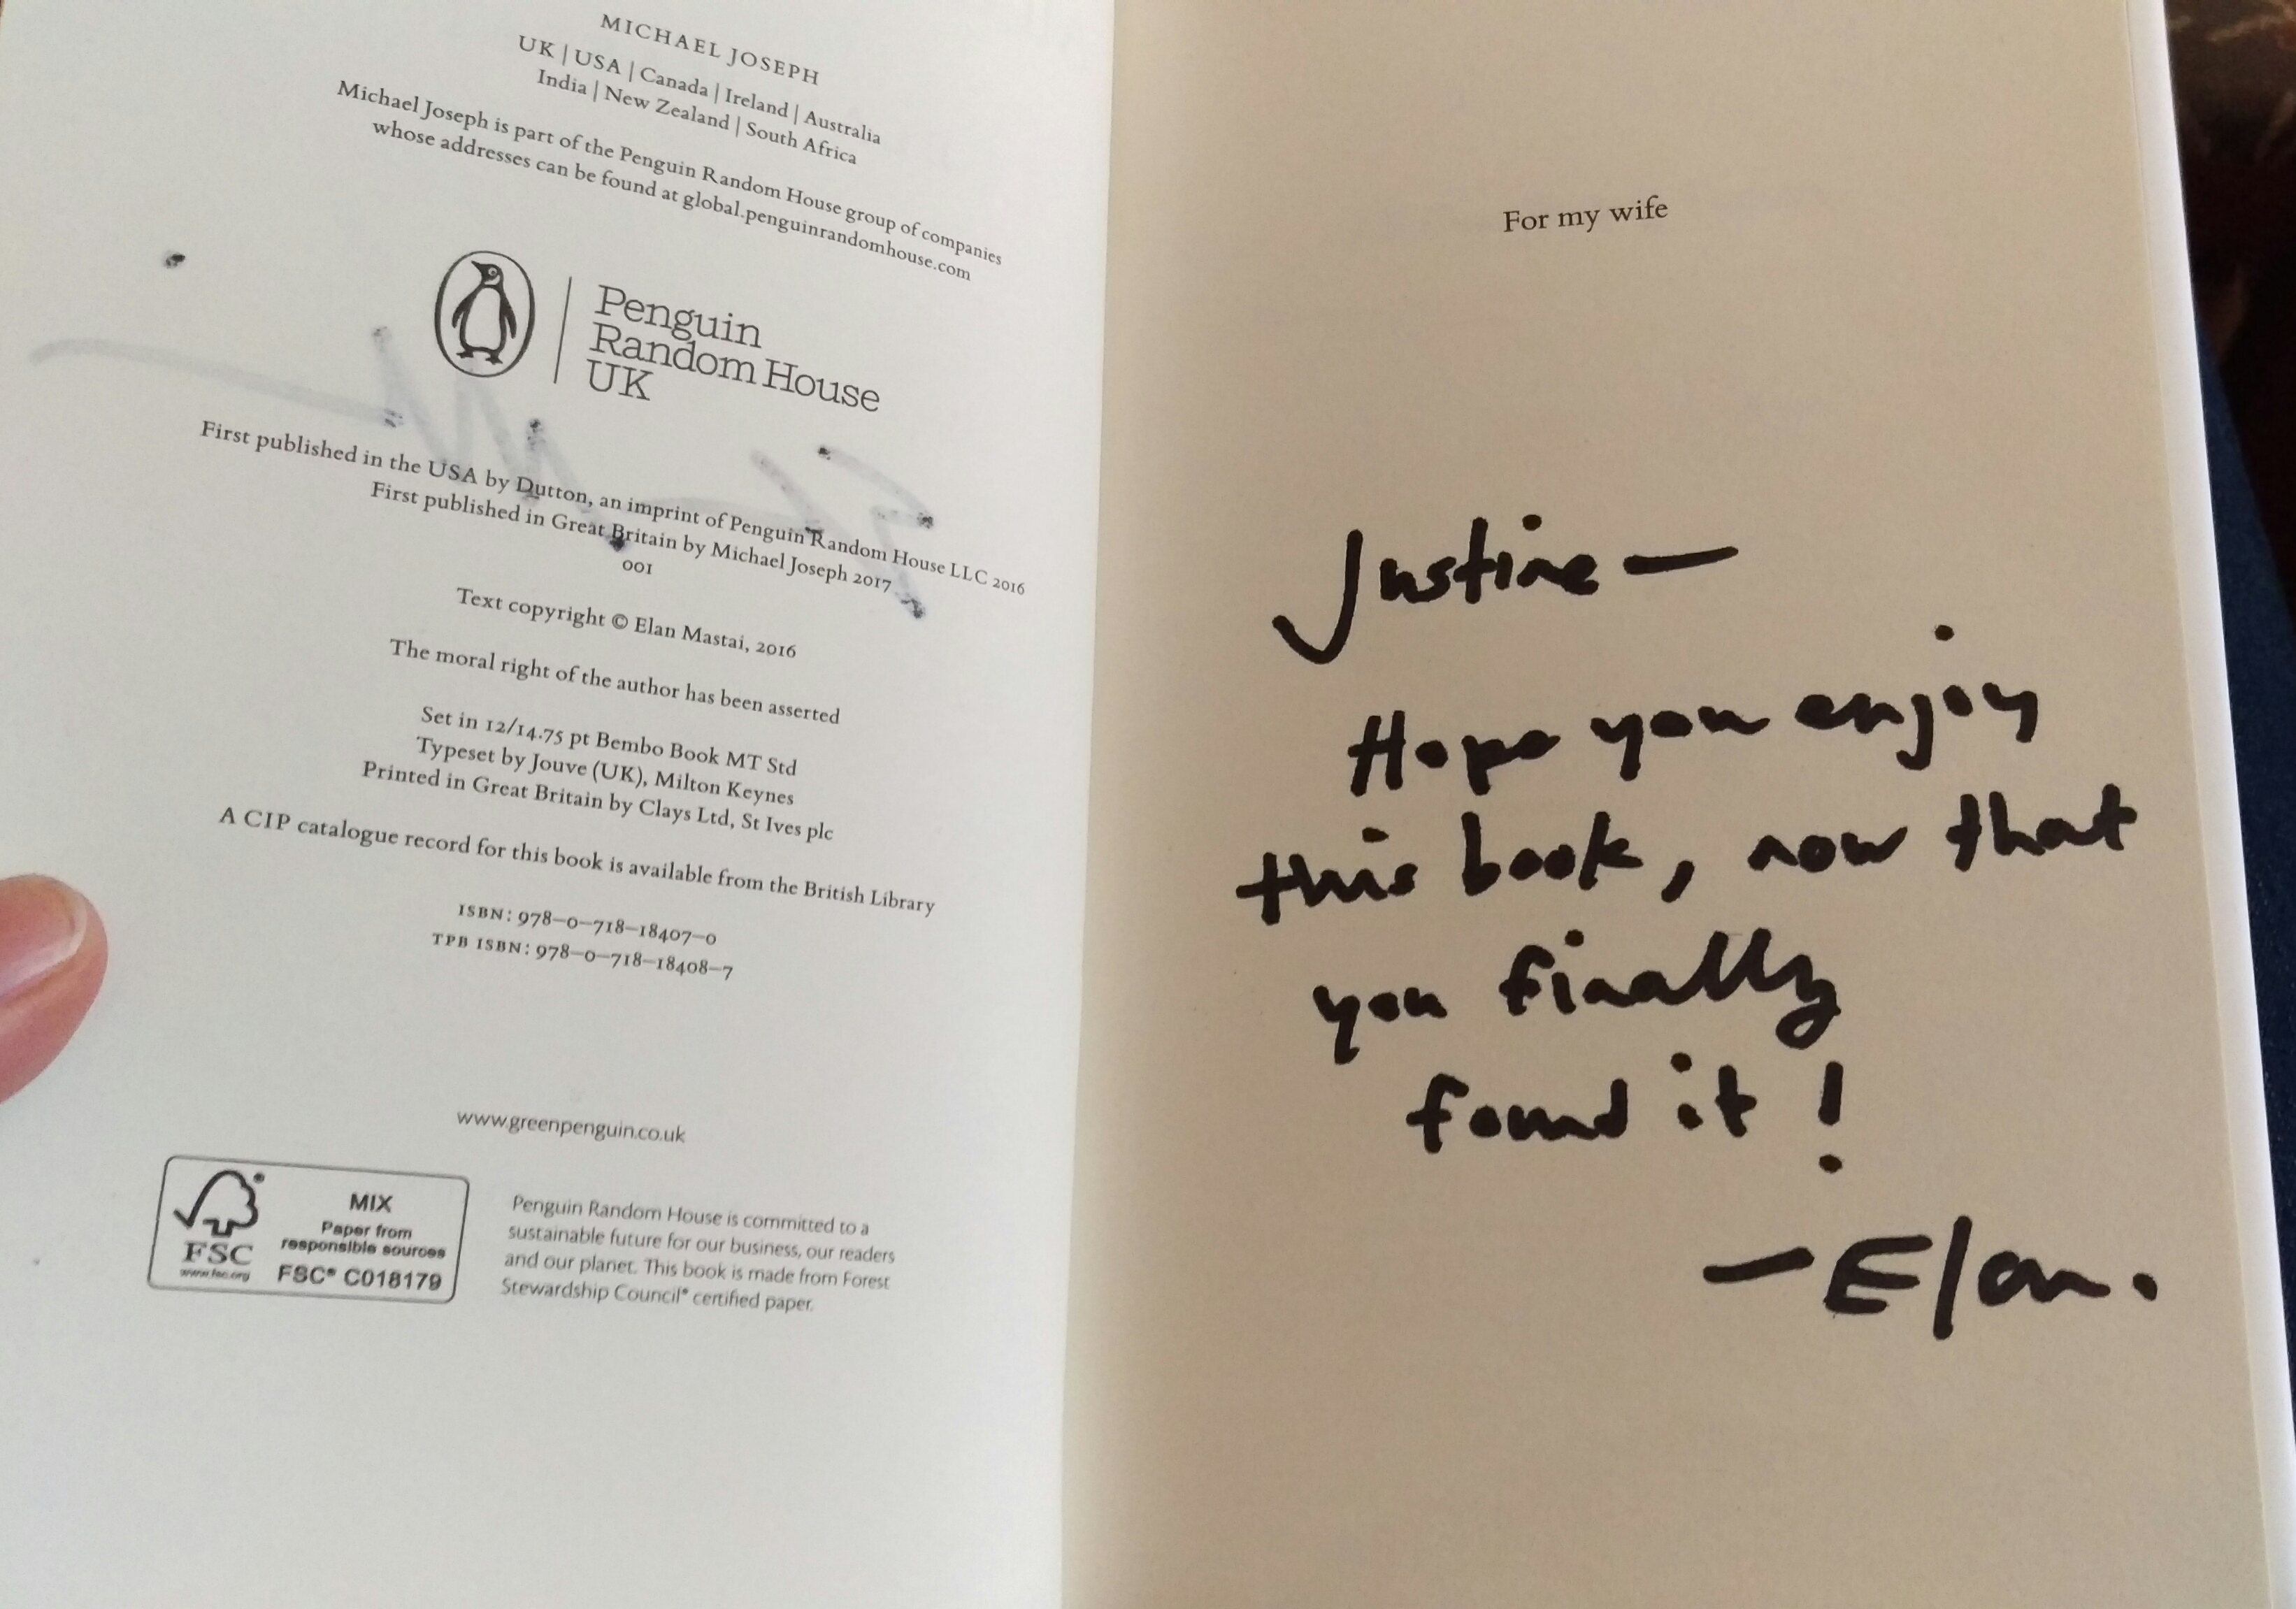 MICHAEL JOSEPH
UK | USA | Canada | Ireland | Australia
India | New Zealand | South Africa
Michael Joseph is part of the Penguin Random House group of companies
whose addresses can be found at global.penguinrandomhouse.com
Penguin
Random House
UK
First published in the USA by Dutton, an imprint of Penguin Random House LLC 2016
First published in Great Britain by Michael Joseph 2017
001
Text copyright © Elan Mastai, 2016
The moral right of the author has been asserted
Set in 12/14.75 pt Bembo Book MT Std
Typeset by Jouve (UK), Milton Keynes
Printed in Great Britain by Clays Ltd, St Ives plc
A CIP catalogue record for this book is available from the British Library
ISBN: 978–0–718–18407–0
TPB ISBN: 978–0–718–18408–7
www.greenpenguin.co.uk
FSC®
www.fsc.org
MIX
Paper from
responsible sources
FSC® C018179
Penguin Random House is committed to a
sustainable future for our business, our readers
and our planet. This book is made from Forest
Stewardship Council® certified paper.
For my wife
Justine —
Hope you enjoy
this book, now that
you finally
found it!
— Elan.